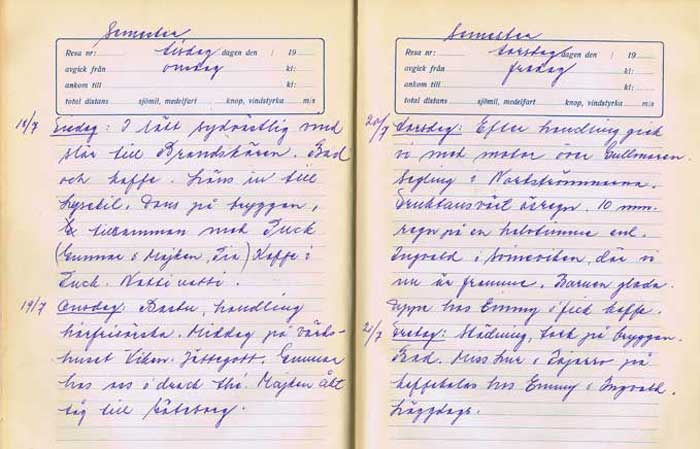 Semester
Resa nr: tisdag dagen den / 19
avgick från onsdag kl:
ankom till kl:
total distans sjömil, medelfart knop, vindstyrka m/s
18/7 Tisdag: I lätt sydvästlig vind
slör till Brandskären. Bad
och kaffe. in till
Lysekil. Dans på bryggan,
tillsamman med Puck
(Gunnar o Majken, Pia) Kaffe i
Puck. Natti natti.
19/7 Onsdag: Bastu, handling
hårfrisörska. Middag på värds-
huset Viken. Jättegott. Gunnar
hos oss o drack thé. Majken åkt
tåg till Göteborg.
Semester
Resa nr: torsdag dagen den / 19
avgick från fredag kl:
ankom till kl:
total distans sjömil, medelfart knop, vindstyrka m/s
20/7 Torsdag: Efter handling gick
vi med motor över Gullmaren.
Segling i Nordströmmarna.
Fruktansvärt ösregn. 10 mm.
regn på en halvtimme enl.
Ingvald i Svineviken, där vi
nu är framme. Barnen glada.
Uppe hos Emmy o fick kaffe.
21/7 Fredag: Städning, tork på bryggan.
Bad. på
kaffekalas hos Emmy o Ingvald.
Läggdags.